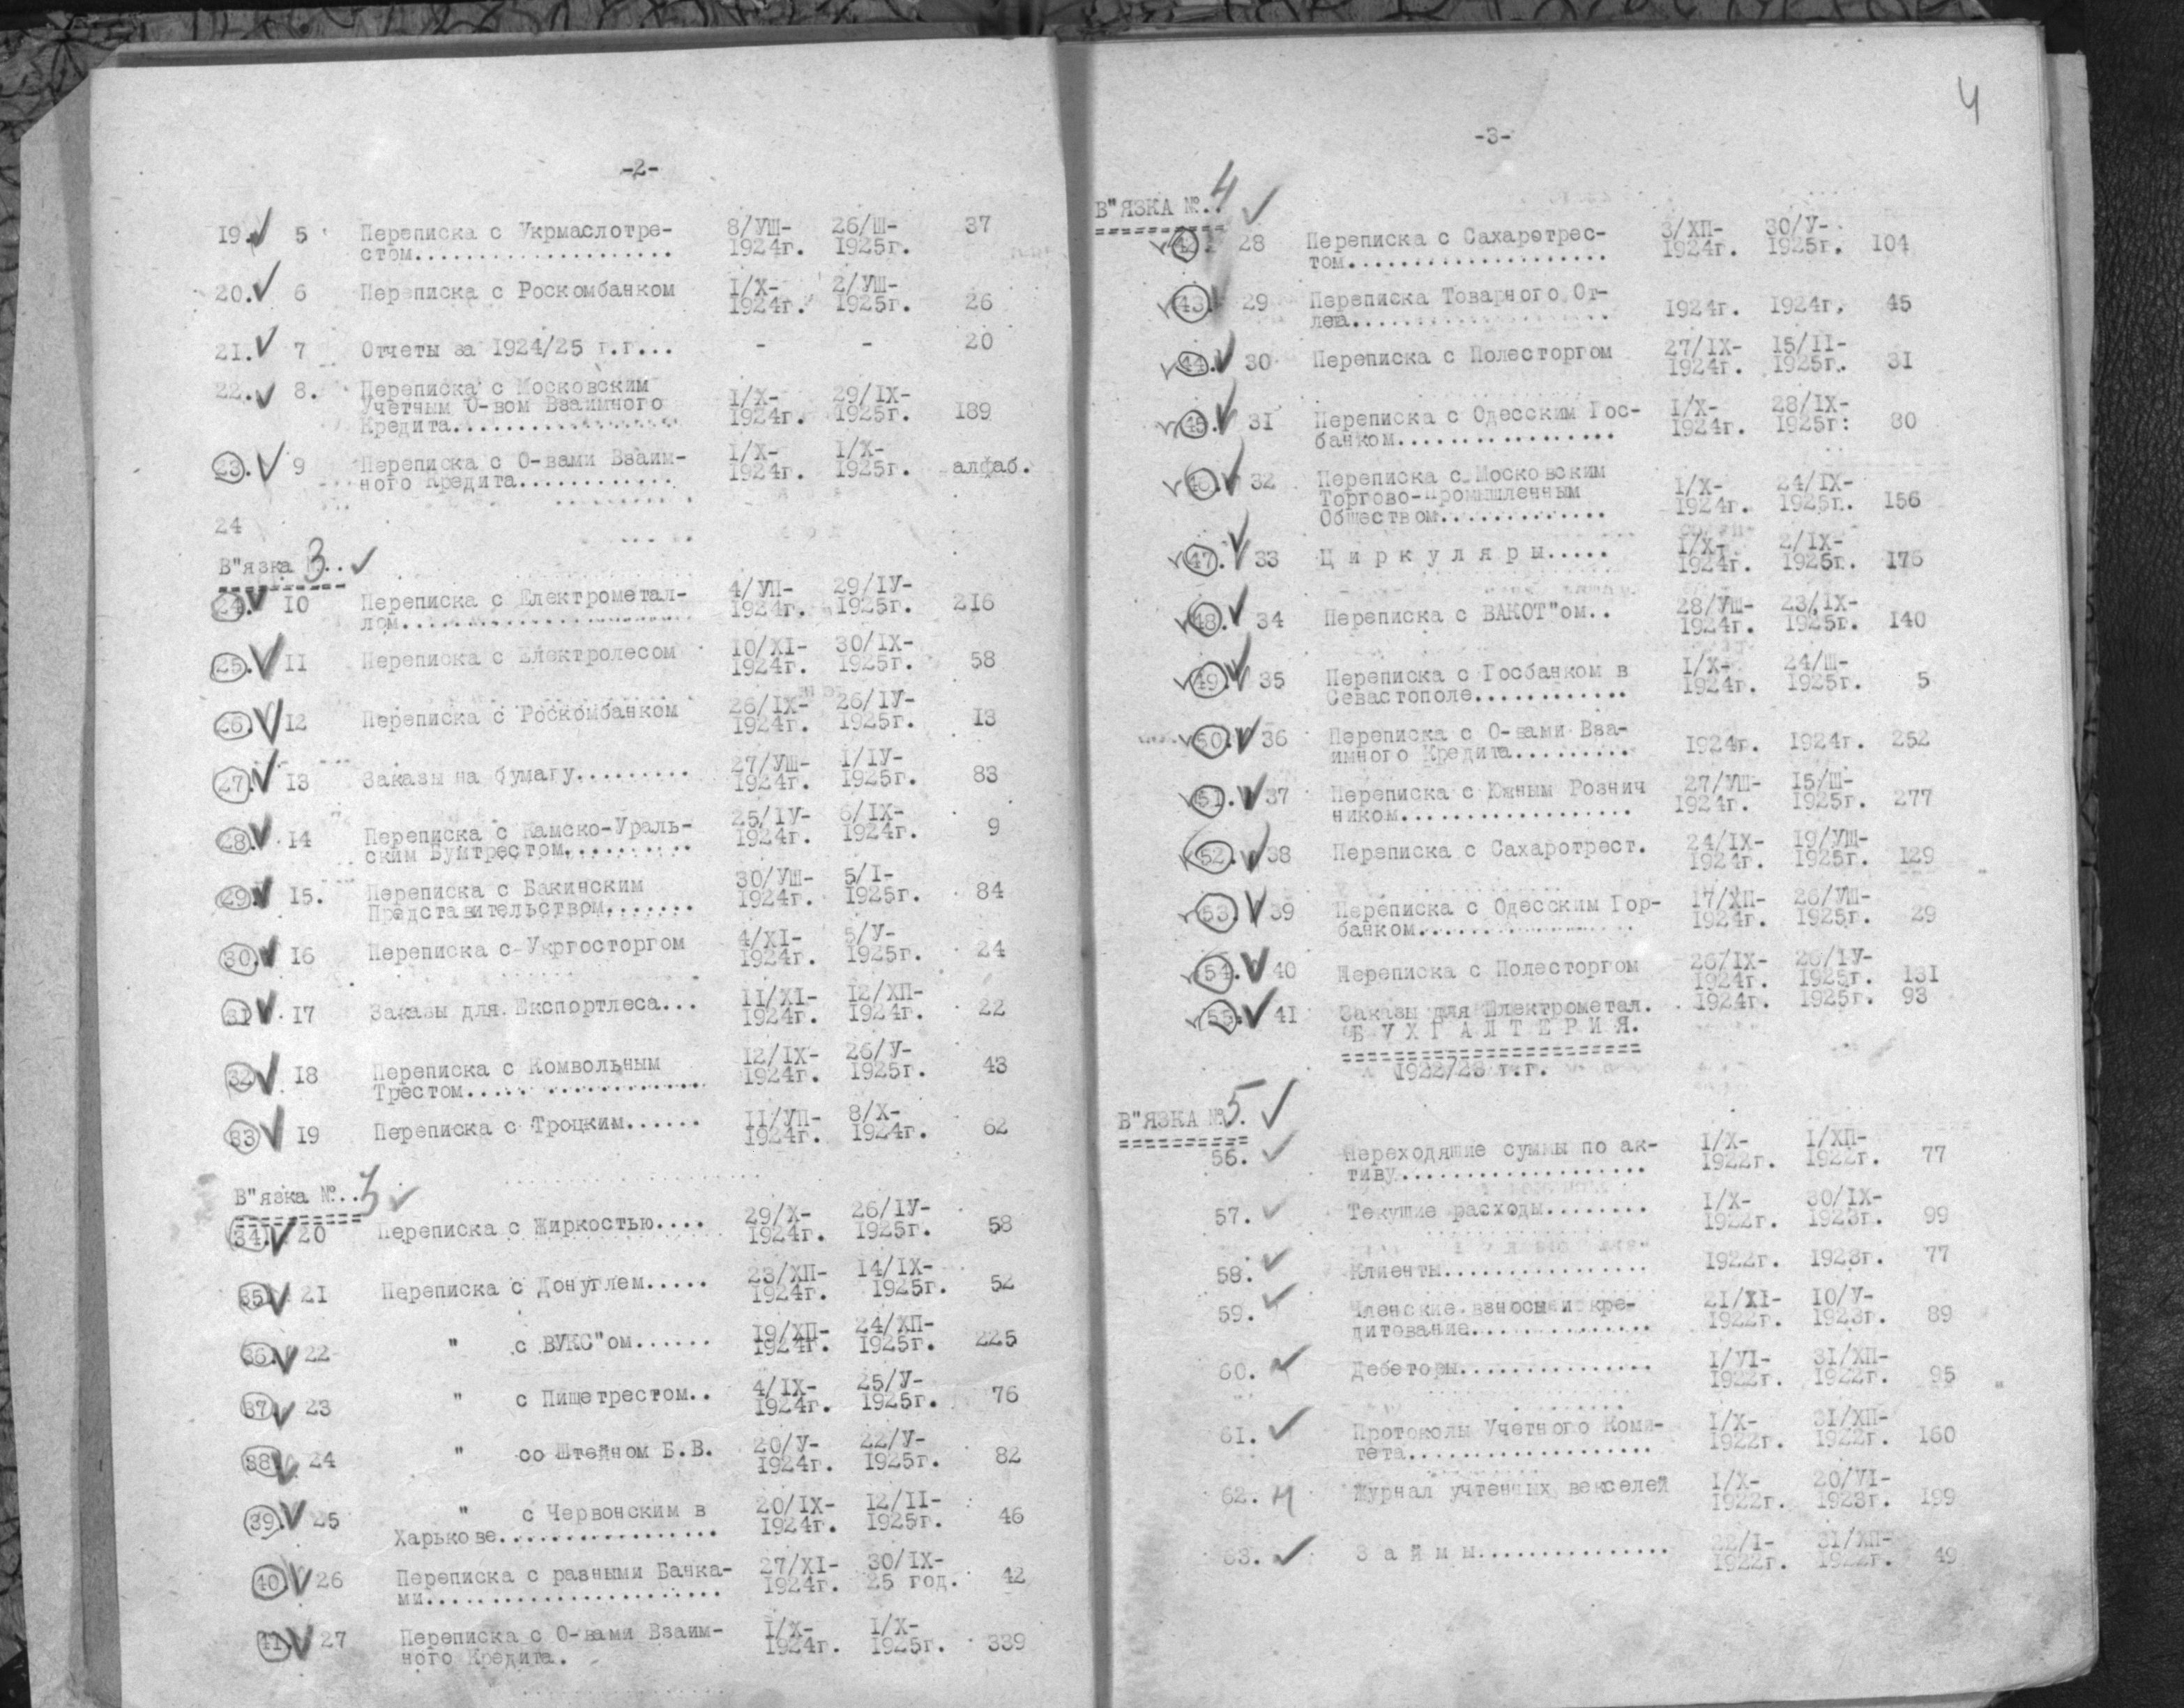 -2-
19. 5 Переписка с Укрмаслотре- 8/УШ- 26/Ш- 37
стом.................... 1924г. 1925г.
20. 6 Переписка с Роскомбанком I/X- 2/УШ-
1924г. 1925г. 26
21. 7 Отчеты за 1924/25 г.г... - - 20
22. 8. Переписка с Московским
Учетным О-вом Взаимного I/X- 29/IX-
Кредита................. 1924г. 1925г. 189
23. 9 Переписка с О-вами Взаим- I/X- I/X-
ного Кредита............ 1924г. 1925г. алфаб.
24
В"язка 3..
24. 10 Переписка с Електрометал- 4/УП- 29/IУ-
лом..................... 1924г. 1925г. 216
25. 11 Переписка с Електролесом 10/XI- 30/IX-
1924г. 1925г. 58
26. 12 Переписка с Роскомбанком 26/IX- 26/IУ-
1924г. 1925г. 13
27. 13 Заказы на бумагу......... 27/УШ- I/IУ-
1924г. 1925г. 83
28. 14 Переписка с Камско-Ураль- 25/IУ- 6/IX-
ским Бумтрестом.......... 1924г. 1924г. 9
29. 15. Переписка с Бакинским 30/УШ- 5/I-
Представительством....... 1924г. 1925г. 84
30. 16 Переписка с Укргосторгом 4/XI- 5/У-
1924г. 1925г. 24
31. 17 Заказы для Експортлеса... 11/XI- 12/ХП-
1924г. 1924г. 22
32. 18 Переписка с Комвольным 12/IX- 26/У-
Трестом.................. 1924г. 1925г. 43
33 19 Переписка с Троцким...... 11/УП- 8/X-
1924г. 1924г. 62
В"язка №..3
34. 20 Переписка с Жиркостью.... 29/X- 26/IУ-
1924г. 1925г. 58
35. 21 Переписка с Донуглем..... 23/ХП- 14/IX-
1924г. 1925г. 52
36. 22 " с ВУКС"ом...... 19/ХП- 24/ХП-
1924г. 1925г. 225
37. 23 " с Пищетрестом.. 4/IX- 25/У-
1924г. 1925г. 76
38. 24 " со Штейном Б.В. 20/У- 22/У-
1924г. 1925г. 82
39. 25 " с Червонским в 20/IX- 12/II-
Харькове................. 1924г. 1925г. 46
40. 26 Переписка с разными Банка- 27/XI- 30/IX-
ми....................... 1924г. 25 год. 42
41. 27 Переписка с О-вами Взаим- I/X- I/X-
ного Кредита. 1924г. 1925г. 339
4
-3-
В"ЯЗКА №.4
42. 28 Переписка с Сахаротрес- 3/ХП- 30/У-
том.................... 1924г. 1925г. 104
43. 29 Переписка Товарного От-
дела................... 1924г. 1924г. 45
44. 30 Переписка с Полесторгом 27/IX- 15/II-
1924г. 1925г. 31
45. 31 Переписка с Одесским Гос- I/X- 28/IX-
банком................. 1924г. 1925г. 80
46. 32 Переписка с Московским
Торгово-Промышленным I/X- 24/IX-
Обществом.............. 1924г. 1925г. 156
47. 33 Ц и р к у л я р ы..... I/X- 2/IX-
1924г. 1925г. 175
48. 34 Переписка с ВАКОТ"ом.. 28/УШ- 23/IX-
1924г. 1925г. 140
49. 35 Переписка с Госбанком в I/X- 24/Ш-
Севастополе............ 1924г. 1925г. 5
50. 36 Переписка с О-вами Вза-
имного Кредита......... 1924г. 1924г. 252
51. 37 Переписка с Южным Рознич 27/УШ- 15/Ш-
ником.................. 1924г. 1925г. 277
52. 38 Переписка с Сахаротрест. 24/IX- 19/УШ-
1924г. 1925г. 129
53. 39 Переписка с Одесским Гор- 17/ХП- 26/УШ-
банком................. 1924г. 1925г. 29
54. 40 Переписка с Полесторгом 26/IX- 26/IУ-
1924г. 1925г. 131
55. 41 Заказы для Електрометал. 1924г. 1925г. 93
Б У Х Г А Л Т Е Р И Я.
1922/23 г.г.
В"ЯЗКА №5.
56. Переходящие суммы по ак- I/X- I/ХП-
тиву................... 1922г. 1922г. 77
57. Текущие расходы........ I/X- 30/IX-
1922г. 1923г. 99
58. Клиенты................ 1922г. 1923г. 77
59. Членские взносы и кре- 21/XI- 10/У-
дитование.............. 1922г. 1923г. 89
60. Дебеторы............... I/УI- 31/ХП-
1922г. 1922г. 95
61. Протоколы Учетного Коми- I/X- 31/ХП-
тета................... 1922г. 1922г. 160
62. Журнал учтенных векселей I/X- 20/УI-
1922г. 1923г. 199
63. З а й м ы.............. 22/I- 31/ХП-
1922г. 1922г. 49